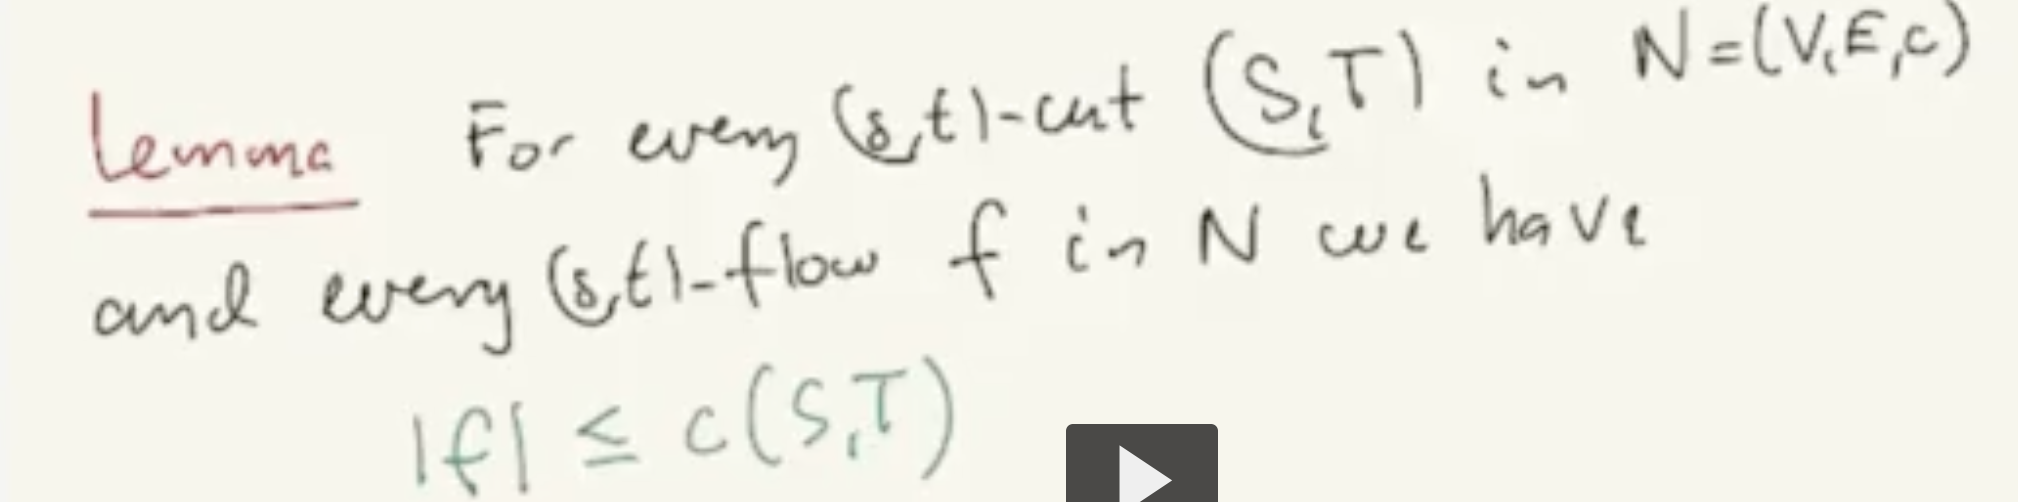 Lemma For every (s,t)-cut (S,T) in N=(V,E,c)
and every (s,t)-flow f in N we have
|f| ≤ c(S,T)